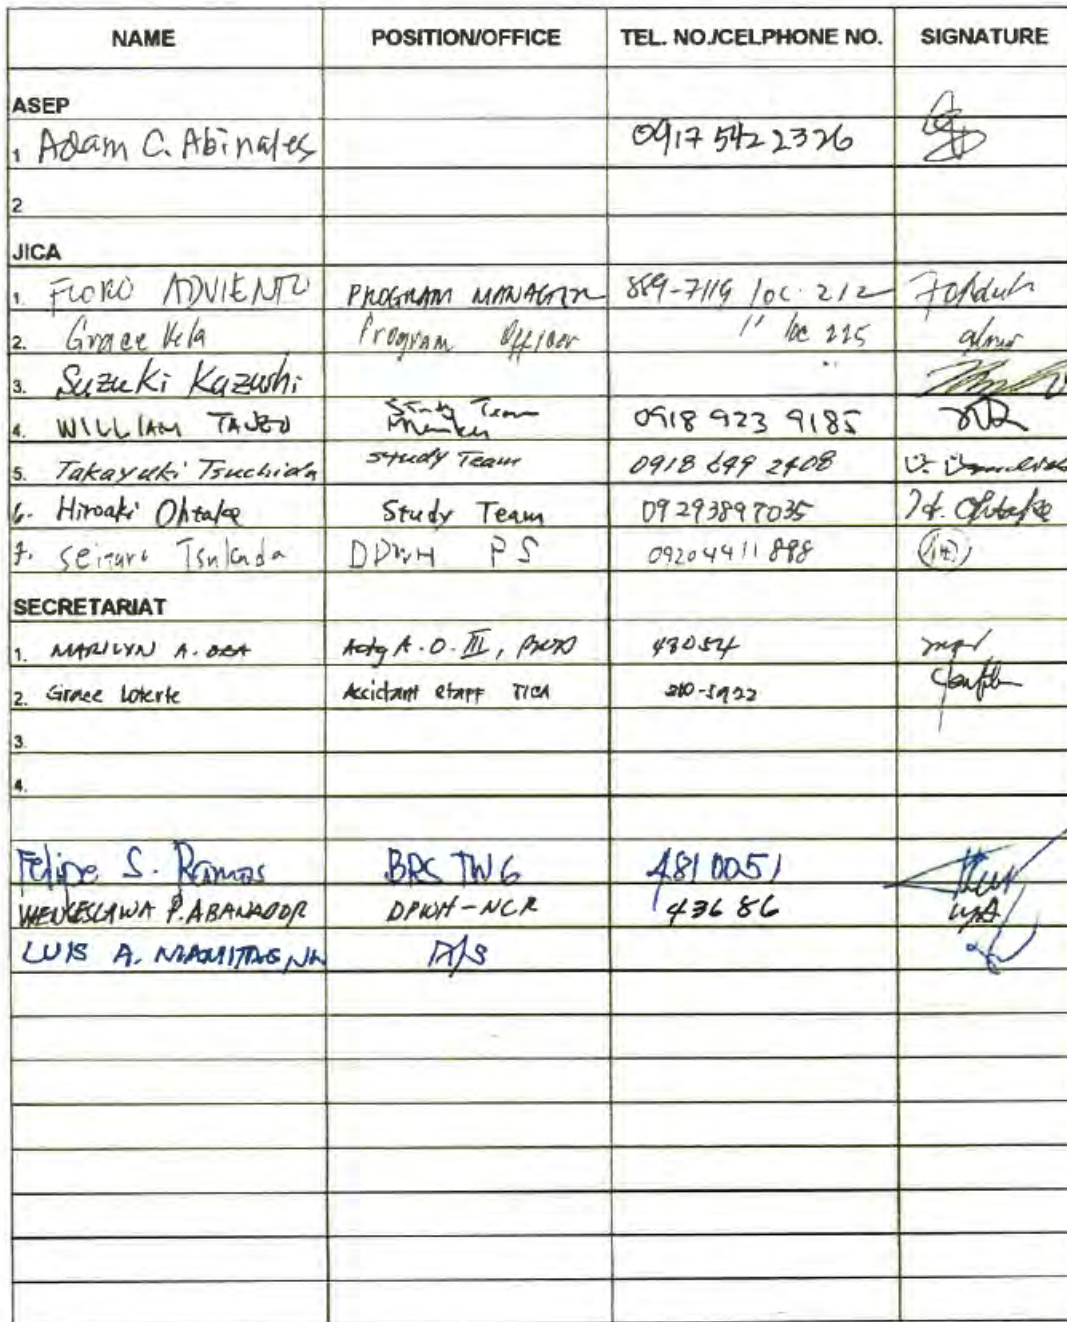 NAME POSITION/OFFICE TEL. NO./CELPHONE NO. SIGNATURE
ASEP
1 Adam C. Abinales 0917 542 2326
2
JICA
1. FLORO ADVIENTO PROGRAM MANAGER 889-7119 loc. 212
2. Grace Vela Program Officer " loc 225
3. Suzuki Kazushi
4. WILLIAM Study Team 0918 923 9185
5. Takayuki Tsuchida Study Team 0918 649 2408
6. Hiroaki Ohtake Study Team 09293897035 H. Ohtake
7. Tsukada DPWH PS 09204411888
SECRETARIAT
1. MARILYN A. Actg A.O. III, 43054
2. Grace Loterte Assistant Staff JICA 210-5922
3.
4.
Felipe S. Ramos BRS TWG 4810051
WENCESLAWA P. ABANADOR DPWH-NCR 43686
LUIS A. A/S